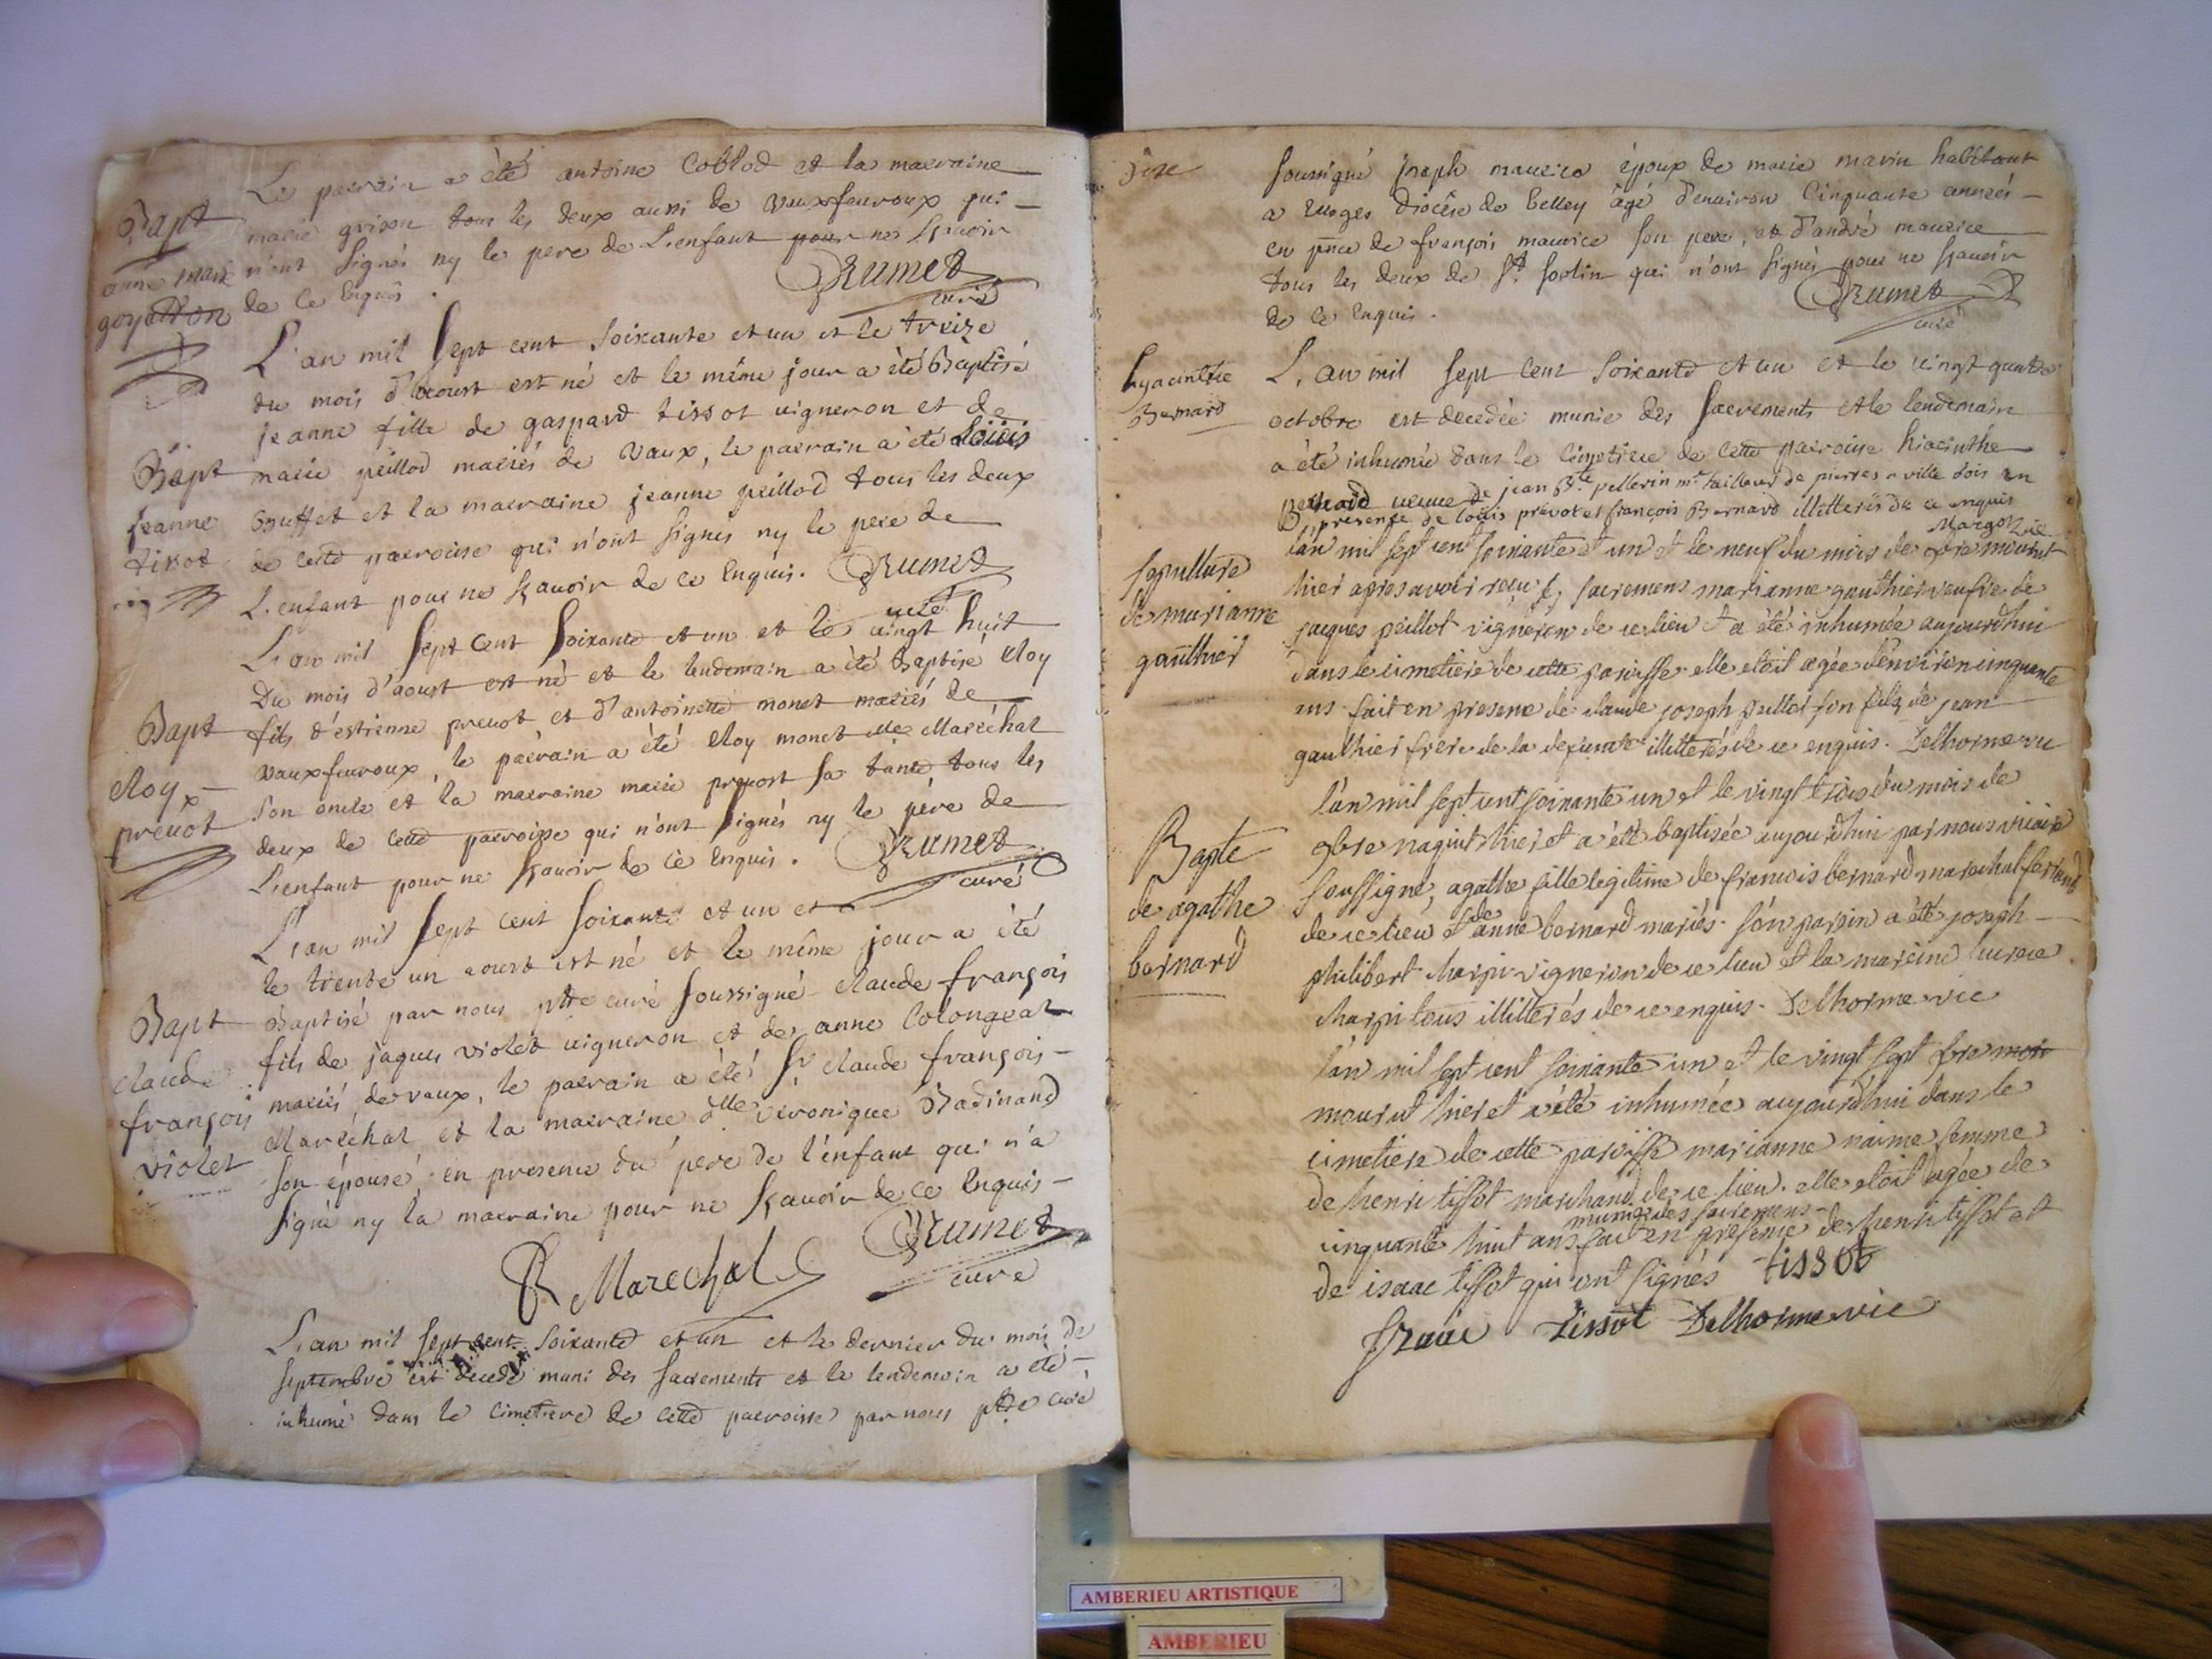 Le parrain a été antoine Coblod et la marraine
Bapt
marie grison tous les deux aussi de vauxfevroux qui
anne marie
n'ont signés ny le pere de L'enfant pour ne sçavoir
goyatton
de ce Enquis.
Rumet
curé
L'an mil sept cent soixante et un et le treize
du mois d'aoust est né et le même jour a été Baptisé
jeanne fille de gaspard tissot vigneron et de
Bapt
marie peillod mariés de Vaux, le parrain a été Loüis
jeanne
et la marraine jeanne peillod tous les deux
tisot
de cette parroisse qui n'ont signés ny le pere de
L'enfant pour ne sçavoir de ce Enquis. Rumet
curé
L'an mil sept Cent soixante et un et le vingt huit
Du mois d'aoust est né et le lendemain a été Baptisé Eloy
Bapt
fils d'estienne prevot et d'antoinette monet mariés de
vauxfevroux, le parrain a été Eloy monet Maréchal
Eloy
son oncle et la marraine marie prevost sa tante, tous les
prevot
deux de cette parroisse qui n'ont signés ny le père de
L'enfant pour ne sçavoir de ce Enquis. Rumet
curé
L'an mil sept cent soixante et un et
le trente un aoust est né et le même jour a été
Bapt
Baptisé par nous ptre curé soussigné Claude françois
Claude
fils de jaques violet vigneron et de anne Colongeat
françois
mariés de vaux, le parrain a été Sr Claude françois
violet
Maréchal et la marraine dlle veronique Badinand
son épouse en presence du pere de l'énfant qui n'a
signé ny la marraine pour ne sçavoir de ce Enquis
Rumet
Marechal
curé
L'an mil sept cent soixante et un et le dernier du mois de
septembre est decedé muni des sacrements et le lendemain a été
inhumé dans le Cimetiere de cette parroisse par nous ptre curé
soussigné joseph maurice époux de marie marin habitant
a diocèse de Belley âgé d'environ Cinquante années
en pnce de françois maurice son pere, et d'andré maurice
tous les deux de St sorlin qui n'ont signés pour ne sçavoir
de ce Enquis.
Rumet
curé
hyacinthe
Bernard
L'an mil sept Cent soixante et un et le vingt quatre
octobre est decedée munie des sacrements et le lendemain
a été inhumée dans le Cimetiere de cette parroisse hiacinthe
Bernard veuve de jean Bte pellerin me tailleur de pierres a ville bois en
presence de loüis prevot et françois Bernard illitterés de ce enquis
Margot vic
sepulture
de marianne
gauthier
l'an mil sept cent soixante et un et le neuf du mois de mourut
hier apres avoir reçu les sacremens marianne gauthier veufve de
jacques peillot vigneron de ce lieu et a été inhumée aujourdhui
dans le cimetiere de cette paroisse elle etoit agée d'environ cinquante
ans fait en presence de claude joseph peillot son fils, de jean
gauthier frere de la defunte illitterés de ce enquis. Delhorme vic
Bapte
de agathe
bernard
l'an mil sept cent soixante un et le vingt trois du mois de
9bre naquit hier et a été baptisée aujourdhui par nous vicaire
soussigné, agathe fille legitime de francois bernard marechal ferrand
de ce lieu et de anne bernard mariés. son parain a été joseph
philibert charpi vigneron de ce lieu et la mareine lucrece
charpi tous illitterés de ce enquis. Delhorme vic
l'an mil sept cent soixante un et le vingt sept
mourut hier et a été inhumée aujourdhui dans le
cimetiere de cette paroisse marianne naime femme
de henri tissot marchand de ce lieu. elle etoit agée de
cinquante huit ans munie des sacremens fait en presence de henri tissot et
de isaac tissot qui ont signés tissot
Isaac tissot Delhorme vic
AMBERIEU ARTISTIQUE
AMBERIEU